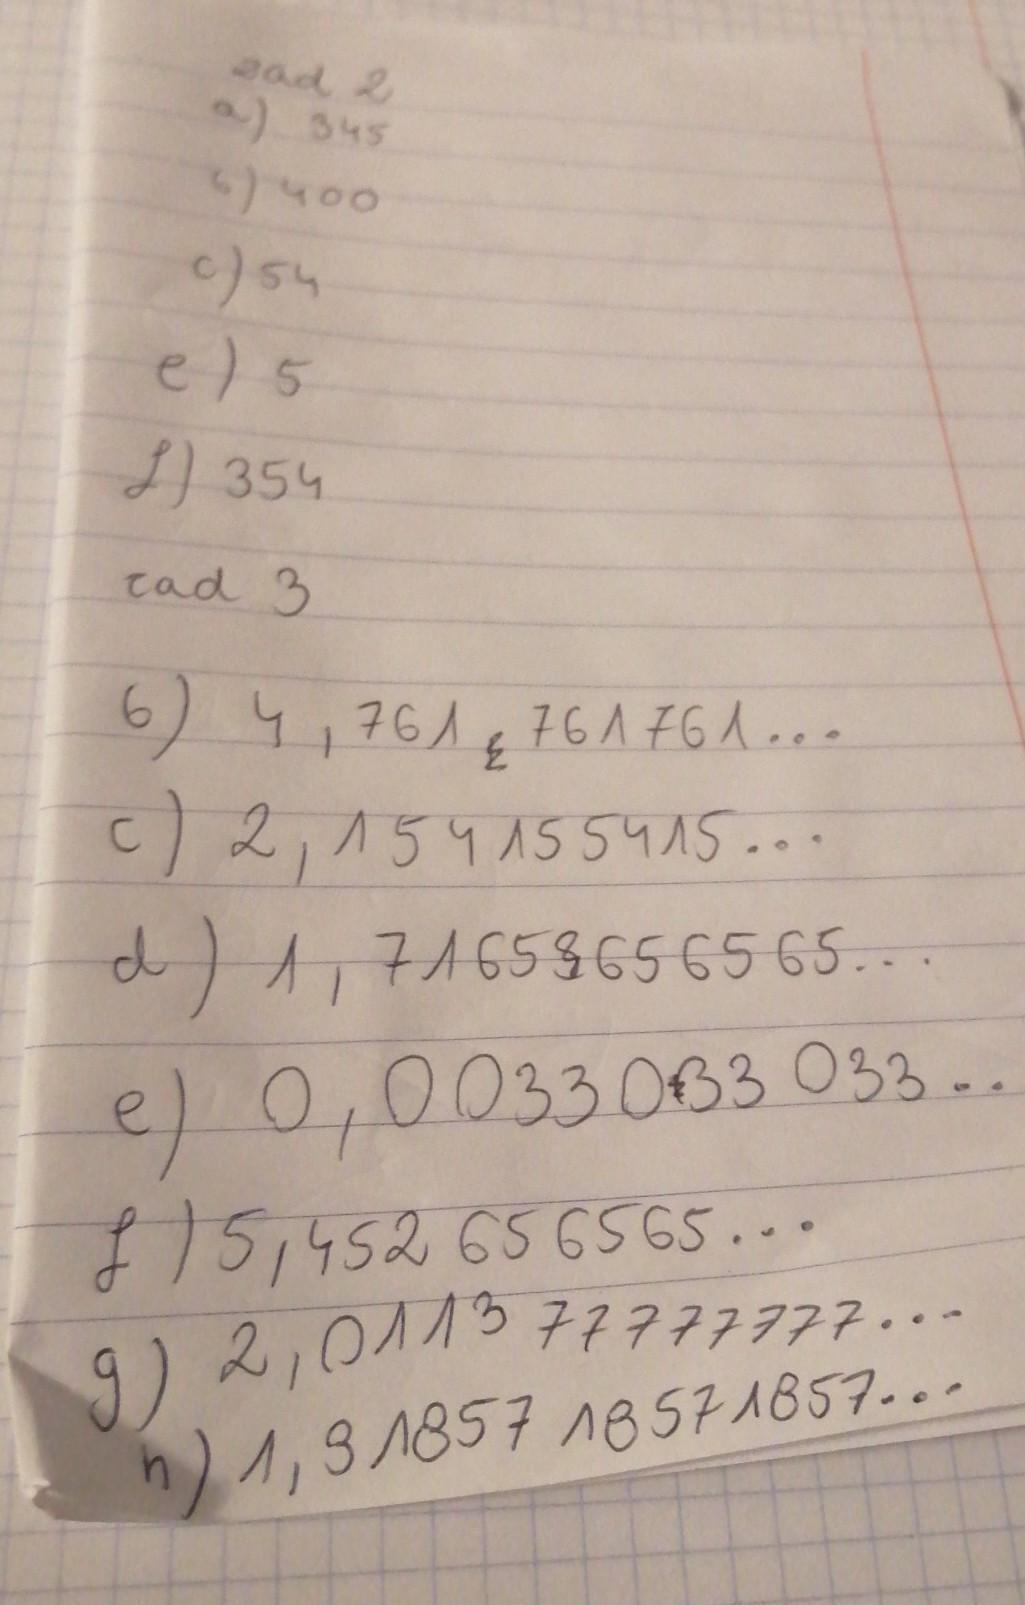 zad 2
a) 345
b) 400
c) 54
e) 5
f) 354
zad 3
b) 4,761761761...
c) 2,154155415...
d) 1,7165656565...
e) 0,0033033033...
f) 5,452656565...
g) 2,011377777777...
h) 1,9185718571857...